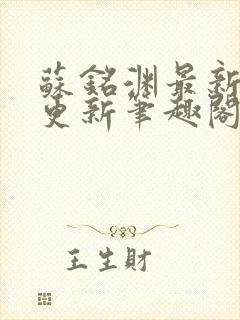 蘇銘淵最新
更新筆趣閣
王生財